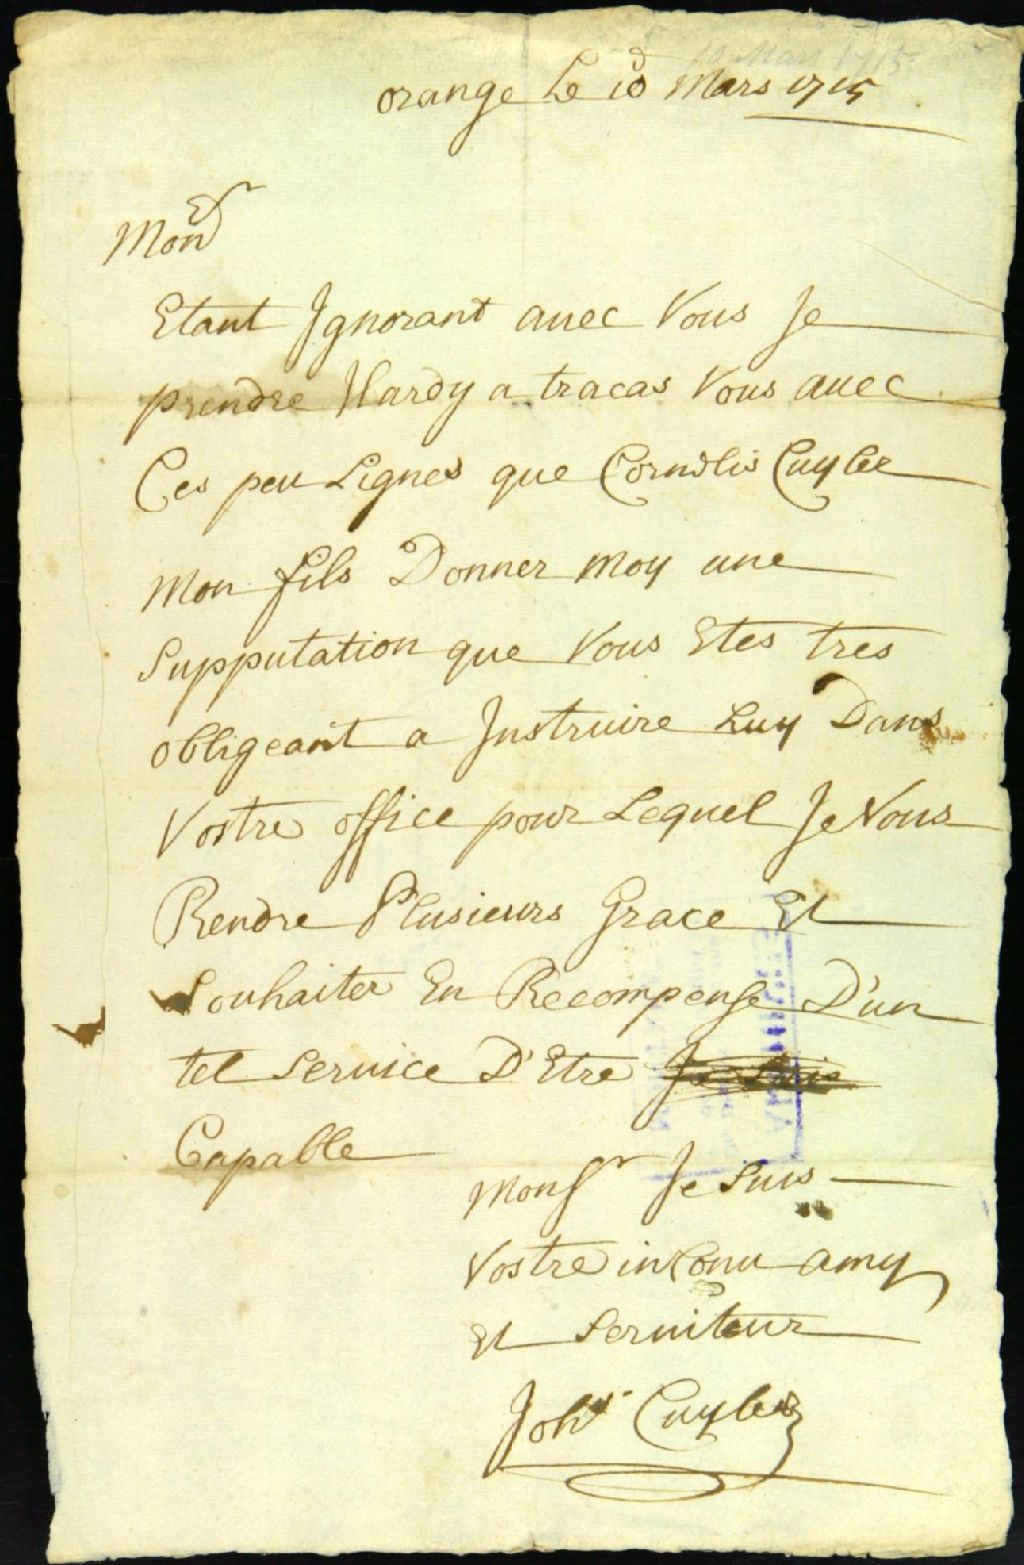 orange Le 10 Mars 1715
Monsr
Etant Ignorant auec Vous Je
prendre Hardy a tracas Vous auec
Ces peu Lignes que Cornelis Cuyler
Mon fils Donner moy une
Supputation que Vous Etes tres
obligeant a Instruire Luy Dans
Vostre office pour Lequel Je Vous
Rendre Plusieurs Grace Et
Souhaiter En Recompense D'un
tel Service D'Etre Je Suis
Capable
Monsr Je Suis
Vostre inConu amy
Et Seruiteur
Johs Cuyler